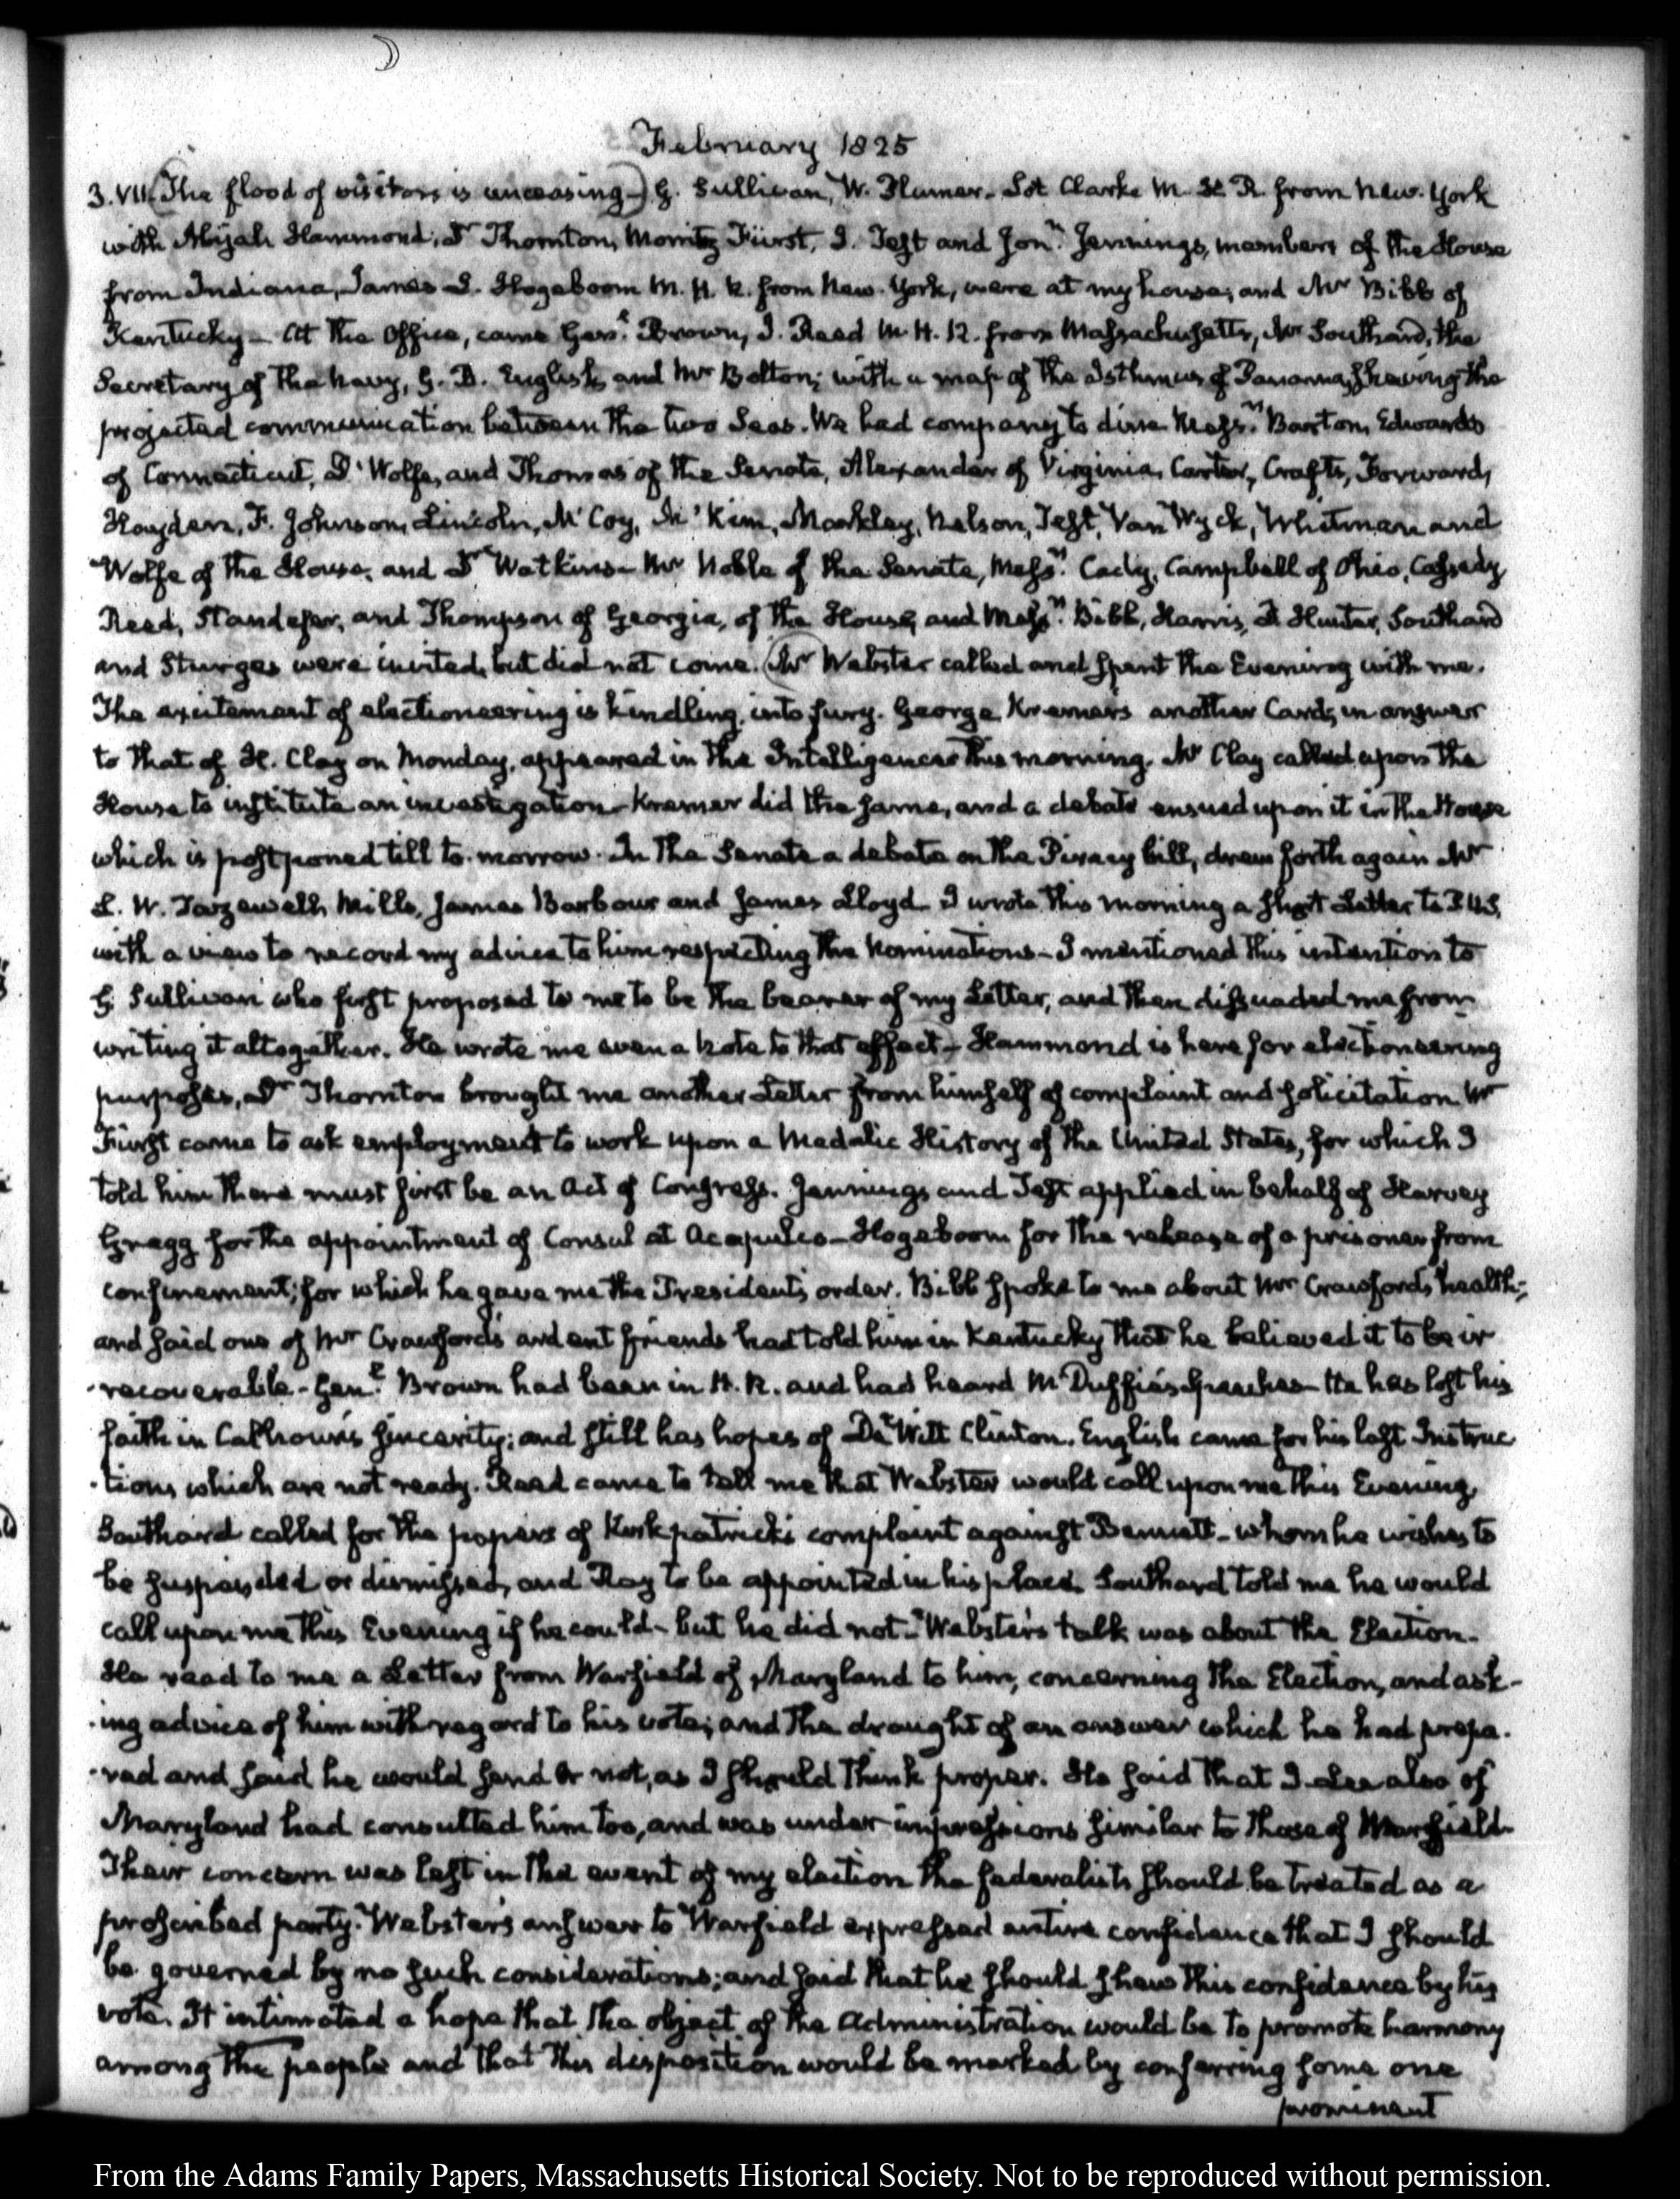 February 1825
3. VII. (The flood of visitors is unceasing—) G. Sullivan, W. Plumer— Lot Clarke M. H. R. from New-York
with Abijah Hammond, Dr Thornton, Moritz Fürst, J. Test and Jonn. Jennings, members of the House
from Indiana, James L. Hogeboom M. H. R. from New-York, were at my house, and Mr Bibb of
Kentucky— At the Office, came Genl. Brown, J. Reed M. H. R. from Massachusetts, Mr Southard, the
Secretary of the Navy, G. B. English, and Mr Bolton; with a map of the Isthmus of Panama, shewing the
projected communication between the two Seas. We had company to dine Messrs. Barton, Edwards
of Connecticut, D'Wolfe, and Thomas of the Senate, Alexander of Virginia, Carter, Crafts, Forward,
Hayden, F. Johnson, Lincoln, McCoy, McKim, Markley, Nelson, Test, Van Wyck, Whitman and
Wolfe of the House, and Dr Watkins— Mr Noble of the Senate, Messrs. Cady, Campbell of Ohio, Cassedy
Reed, Standefer, and Thompson of Georgia, of the House, and Messrs. Bibb, Harris, D Hunter, Southard
and Sturges were invited, but did not come. (Mr Webster called and spent the Evening with me.
The excitement of electioneering is kindling into fury. George Kremer's another Card, in answer
to that of H. Clay on Monday, appeared in the Intelligencer this morning. Mr Clay called upon the
House to institute an investigation— Kremer did the same, and a debate ensued upon it in the House
which is postponed till to-morrow. In the Senate a debate on the Piracy bill, drew forth again Mr
L. W. Tazewell, Mills, James Barbour and James Lloyd. I wrote this morning a short Letter to P. U.S.
with a view to record my advice to him respecting the Nominations— I mentioned this intention to
G. Sullivan who first proposed to me to be the bearer of my Letter, and then dissuaded me from
writing it altogether. He wrote me even a Note to that effect— Hammond is here for electioneering
purposes, Dr Thornton brought me another Letter from himself of complaint and solicitation Mr
Fürst came to ask employment to work upon a Medalic History of the United States, for which I
told him there must first be an Act of Congress. Jennings and Test applied in behalf of Harvey
Gregg for the appointment of Consul at Acapulco— Hogeboom for the release of a prisoner from
confinement; for which he gave me the President's order. Bibb spoke to me about Mr Crawford's health;
and said one of Mr Crawford's ardent friends had told him in Kentucky that he believed it to be ir
-recoverable— Genl. Brown had been in H. R. and had heard McDuffie's speeches— He has lost his
faith in Calhoun's sincerity; and still has hopes of De Witt Clinton. English came for his last Instruc
-tions which are not ready. Reed came to tell me that Webster would call upon me this Evening
Southard called for the papers of Kirkpatrick's complaint against Bennett— whom he wishes to
be suspended or dismissed, and Ray to be appointed in his place. Southard told me he would
call upon me this Evening if he could— but he did not— Webster's talk was about the Election—
He read to me a Letter from Warfield of Maryland to him, concerning the Election, and ask-
-ing advice of him with regard to his vote; and the draught of an answer which he had prepa-
-red and said he would send or not, as I should think proper. He said that J. Lee also of
Maryland had consulted him too, and was under impressions similar to those of Warfield—
Their concern was lest in the event of my election the federalists should be treated as a
proscribed party. Webster's answer to Warfield expressed entire confidence that I should
be governed by no such considerations; and said that he should shew this confidence by his
vote. It intimated a hope that the object of the Administration would be to promote harmony
among the people and that this disposition would be marked by conferring some one
prominent
From the Adams Family Papers, Massachusetts Historical Society. Not to be reproduced without permission.